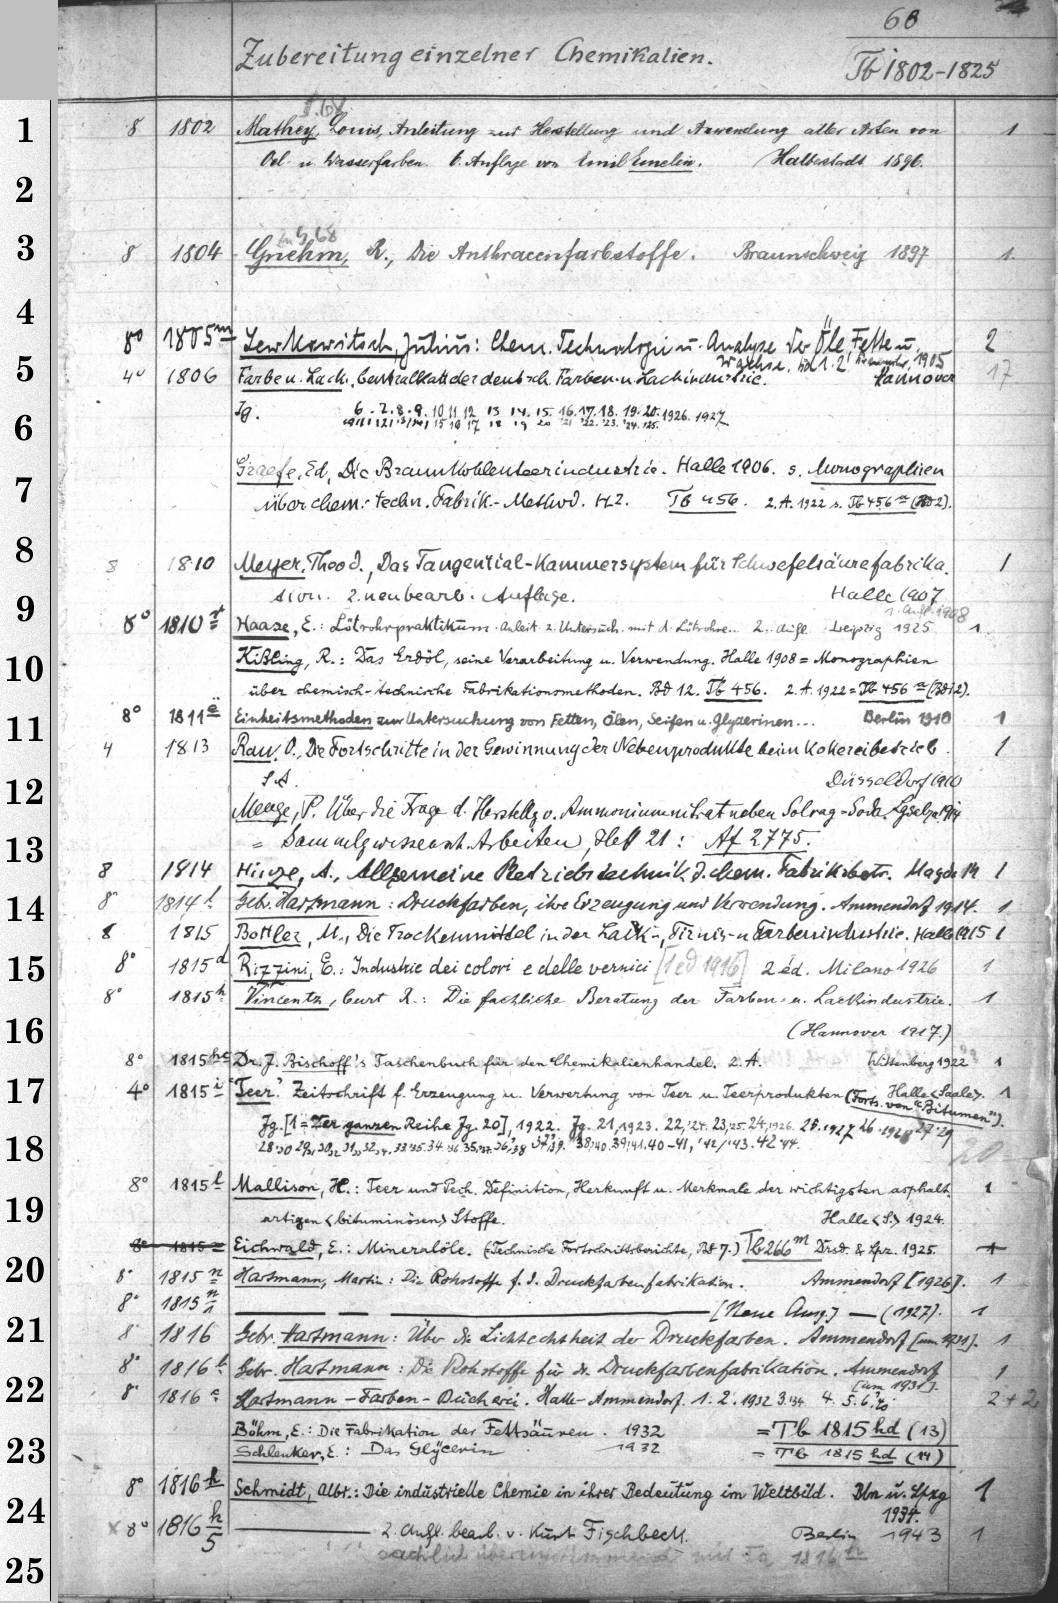 68
Zubereitung einzelner Chemikalien.
Tb 1802-1825
S. 68
1 8 1802 Mathey, Louis, Anleitung zur Herstellung und Anwendung aller Arten von 1
Oel- u. Wasserfarben. 6. Auflage von Emil Emelin. Halberstadt 1896.
2
S. 68
3 8 1804 Gnehm, R., Die Anthracenfarbstoffe. Braunschweig 1897 1.
4
8° 1805m Lewkowitsch, Julius: Chem. Technologie u. Analyse der Öle, Fette u. 2
Wachse. Bd 1. 2! 1905
5 4° 1806 Farbe u. Lack. Centralblatt der deutsch. Farben- u. Lackindustrie. Hannover 17
6 Jg. 6. 7. 8. 9. 10 11 12 13 14. 15. 16. 17. 18. 19. 20. 1926. 1927
Graefe, Ed, Die Braunkohlenteerindustrie. Halle 1906. s. Monographien
7 über chem.-techn. Fabrik.-Method. H 2. Tb 456. 2. A. 1922 s. Tb 456 a (Bd 2).
8 8 1810 Meyer, Theod., Das Tangential-Kammersystem für Schwefelsäurefabrika- 1
9 tion. 2. neubearb. Auflage. Halle 1907
1. Aufl. 1908
8° 1810 Haase, E.: Lötrohrpraktikum. Anleit. z. Untersuch. mit d. Lötrohre... 2. Aufl. Leipzig 1925 1.
10 Kißling, R.: Das Erdöl, seine Verarbeitung u. Verwendung. Halle 1908 = Monographien
über chemisch-technische Fabrikationsmethoden. Bd 12. Tb 456. 2. A. 1922 = Tb 456 a (Bd 12).
11 8° 1811e Einheitsmethoden zur Untersuchung von Fetten, Ölen, Seifen u. Glyzerinen... Berlin 1910 1
4 1813 Rau, O., Die Fortschritte in der Gewinnung der Nebenprodukte beim Kokereibetrieb. 1
12 S A. Düsseldorf 1910
Menge, P. Über die Frage d. Herstellg v. Ammoniumnitrat neben Solvay-Soda. Lgsalza 1914
13 = Sammlg wissensch. Arbeiten, Heft 21: Af 2775.
8 1814 Hinze, A., Allgemeine Betriebstechnik d. chem. Fabrikbetr. Magdb 14 1
14 8° 1814 Gebr. Hartmann: Druckfarben, ihre Erzeugung und Verwendung. Ammendorf 1914. 1
8 1815 Bottler, M., Die Trockenmittel in der Lack-, Firnis- u Farbenindustrie. Halle 1915 1
15 8° 1815d Rizzini, E.: Industrie dei colori e delle vernici [1 ed 1916] 2 éd. Milano 1926 1
8° 1815h Vincentz, Curt R.: Die fachliche Beratung der Farben- u. Lackindustrie. 1
16 (Hannover 1917.)
8° 1815hc Dr. J. Bischoff's Taschenbuch für den Chemikalienhandel. 2. A. Wittenberg 1922 1
17 4° 1815i "Teer." Zeitschrift f. Erzeugung u. Verwertung von Teer u. Teerprodukten (Forts. von "Bitumen"). Halle <Saale>. 1
Jg. [1 = Der ganzen Reihe Jg. 20], 1922. Jg. 21, 1923. 22,'24. 23,'25. 24, 1926. 25. 1927 26. 1928 27. 29
18 28.30 29,31 30,32
19 8° 1815l Mallison, H.: Teer und Pech. Definition, Herkunft u. Merkmale der wichtigsten asphalt- 1
artigen <bituminösen> Stoffe. Halle <S.> 1924.
8° 1815 Eichwald, E.: Mineralöle. (Technische Fortschrittsberichte, Bd 7.) Tb 266m Drsd. & Lpz. 1925. 1
20 8° 1815n Hartmann, Martin: Die Rohstoffe f. d. Druckfarbenfabrikation. Ammendorf [1926]. 1
8° 1815 n/1 [Neue Ausg.] — (1927). 1
21 8° 1816 Gebr. Hartmann: Über die Lichtechtheit der Druckfarben. Ammendorf [um 1931]. 1
8° 1816b Gebr. Hartmann: Die Rohstoffe für die Druckfarbenfabrikation. Ammendorf 1
[um 1931].
22 8° 1816c Hartmann-Farben-Bücherei. Halle-Ammendorf. 1. 2. 1932 3.'34 4. 5. 6. 2+2
Böhm, E.: Die Fabrikation der Fettsäuren. 1932 = Tb 1815 hd (13)
23 Schlenker, E.: Das Glycerin 1932 = Tb 1815 hd (14)
8° 1816h Schmidt, Albr.: Die industrielle Chemie in ihrer Bedeutung im Weltbild. Bln u. Lpzg 1
24 1934.
x 8° 1816 h/5 2. Aufl. bearb. v. Kurt Fischbeck. Berlin 1943 1
25 sachlich übereinstimmend mit Tb 1816